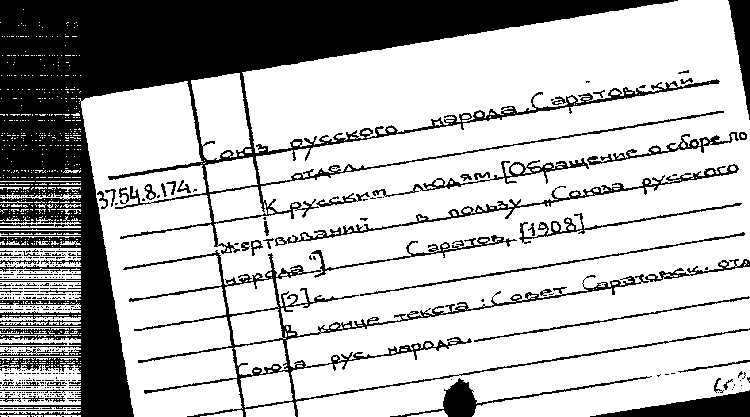 Союз русского народа. Саратовский
отдел.
3754.8.174.
К русским людям. [Обращение о сборе по
жертвований в пользу „Союза русского
народа"]. Саратов, [1908].
[2] с.
В конце текста: Совет Саратовск. отд
Союза рус. народа.